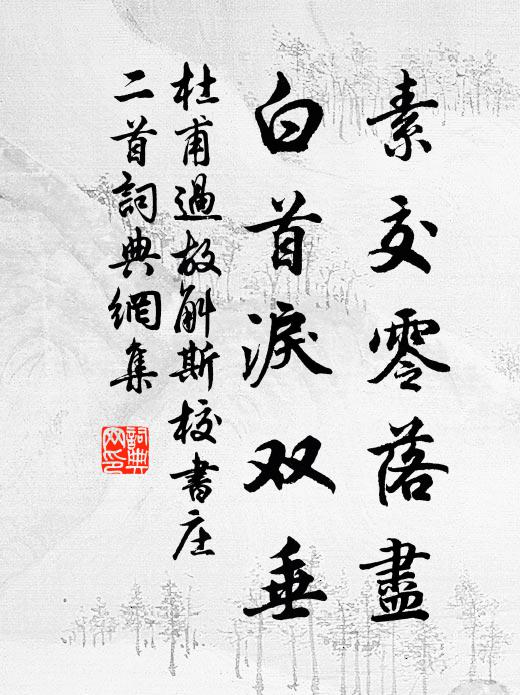 素交零落盡
白首淚双垂
杜甫過故斛斯校書庄
二首詞典網集
詞典
网印